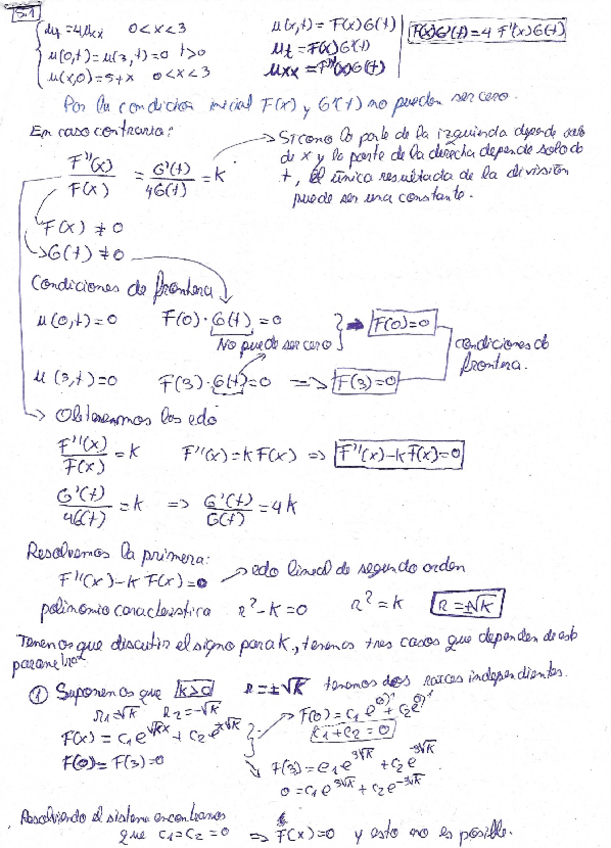 5.1
u_t = 4u_xx 0<x<3
u(0,t) = u(3,t) = 0 t>0
u(x,0) = 5+x 0<x<3
u(x,t) = F(x)G(t)
u_t = F(x)G'(t)
u_xx = F''(x)G(t)
F(x)G'(t) = 4 F''(x)G(t)
Por la condición inicial F(x) y G(t) no pueden ser cero.
En caso contrario:
F''(x)/F(x) = G'(t)/4G(t) = K
Si como la parte de la izquierda depende solo
de x y la parte de la derecha depende solo de
t, el única resultado de la división
puede ser una constante.
F(x) ≠ 0
G(t) ≠ 0
Condiciones de frontera
u(0,t) = 0 F(0)·G(t) = 0 ⇒ F(0)=0
No puede ser cero
condiciones de
frontera.
u(3,t)=0 F(3)·G(t)=0 ⇒ F(3)=0
Obtenemos las edo
F''(x)/F(x) = K F''(x) = K F(x) ⇒ F''(x)-K F(x)=0
G'(t)/4G(t) = K ⇒ G'(t)/G(t) = 4K
Resolvemos la primera:
F''(x)-K F(x)=0 → edo lineal de segundo orden
polinomio característica r²-K=0 r²=K R=±√K
Tenemos que discutir el signo para K, tenemos tres casos que dependen de este
parametro
① Suponemos que K>0 R=±√K tenemos dos raíces independientes.
R1=√K R2=-√K
F(x) = C1 e^{√K x} + C2 e^{-x√K}
F(0)=F(3)=0
F(0)= C1 e^0 + C2 e^0
C1+C2=0
F(3) = C1 e^{3√K} + C2 e^{-3√K}
0 = C1 e^{3√K} + C2 e^{-3√K}
Resolviendo el sistema encontramos
que C1=C2=0 ⇒ F(x)=0 y esto no es posible.